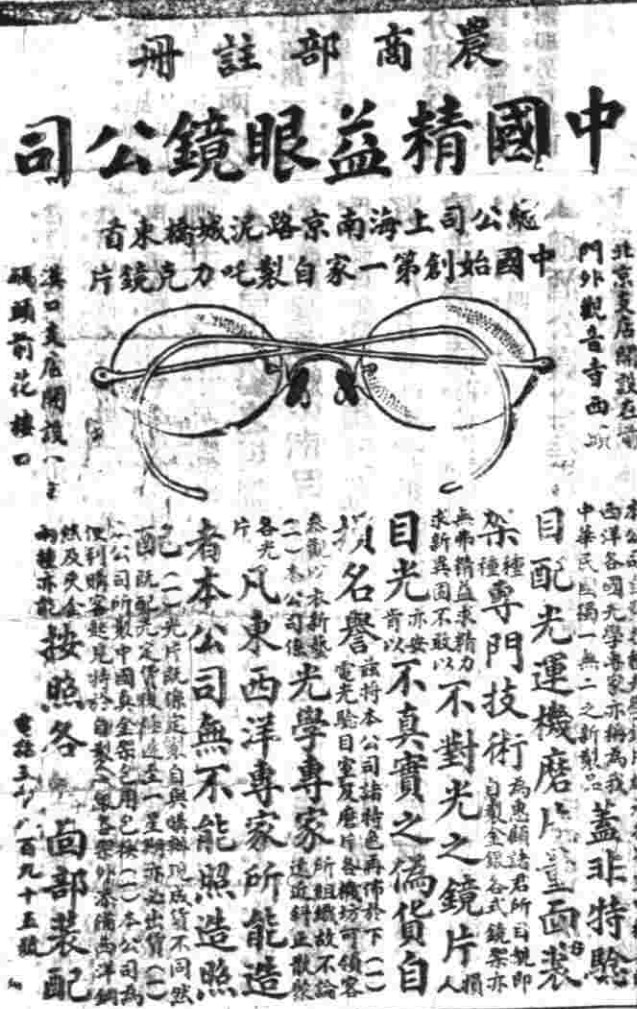 農商部註冊
中國精益眼鏡公司
總公司上海南京路泥城橋東首
中國始創第一家自製吒力克鏡片
北京支店開設在
門外觀音寺西
漢口支店開設一
碼頭前花樓口
西洋各國光學專家亦稱為我
中華民國獨一無二之新製品
蓋非特驗
目配光運機磨片量面裝
架種種專門技術
為惠顧諸君所目覩即
自製金銀各式鏡架亦
無弗精益求精力
求新異固不敢以
不對光之鏡片
損人
目光
亦安
肯以
不真實之偽貨自
損名譽
茲將本公司諸特色再佈於下(一)
電光驗目室及磨片各機坊可領客
參觀以表新藝
(一)本公司係
光學專家
所組織故不論
遠近斜正散漿
各光
片
凡東西洋專家所能造
者本公司無不能照造照
配
(一)光片既係定製自與購辦現成貨不同然
既配光定貨後經造至一星期亦必出貨(一)
公司所製中國真金架包用包換(一)本公司為
便利購客起見特於自製金銀各架外添備西洋鋼
然及夾金
兩種亦能
按照各
面部裝配
百九十五號